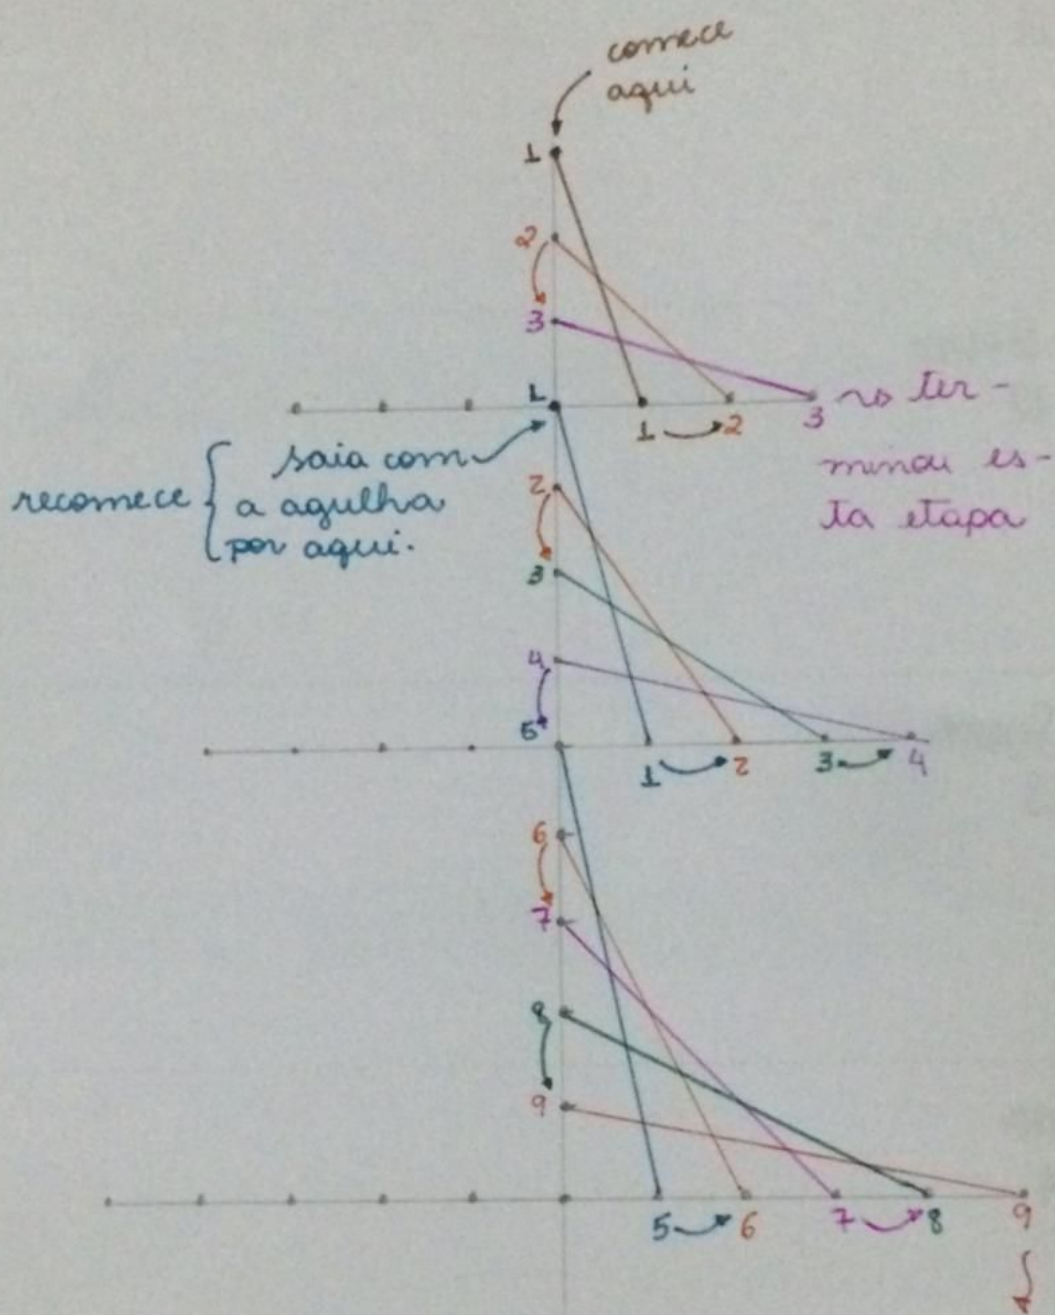 comece
aqui
1
2
3
1
1
2
3 ter-
minou es-
ta etapa
recomece
saia com
a agulha
por aqui.
2
3
4
5
1
2
3
4
6
7
8
9
5
6
7
8
9